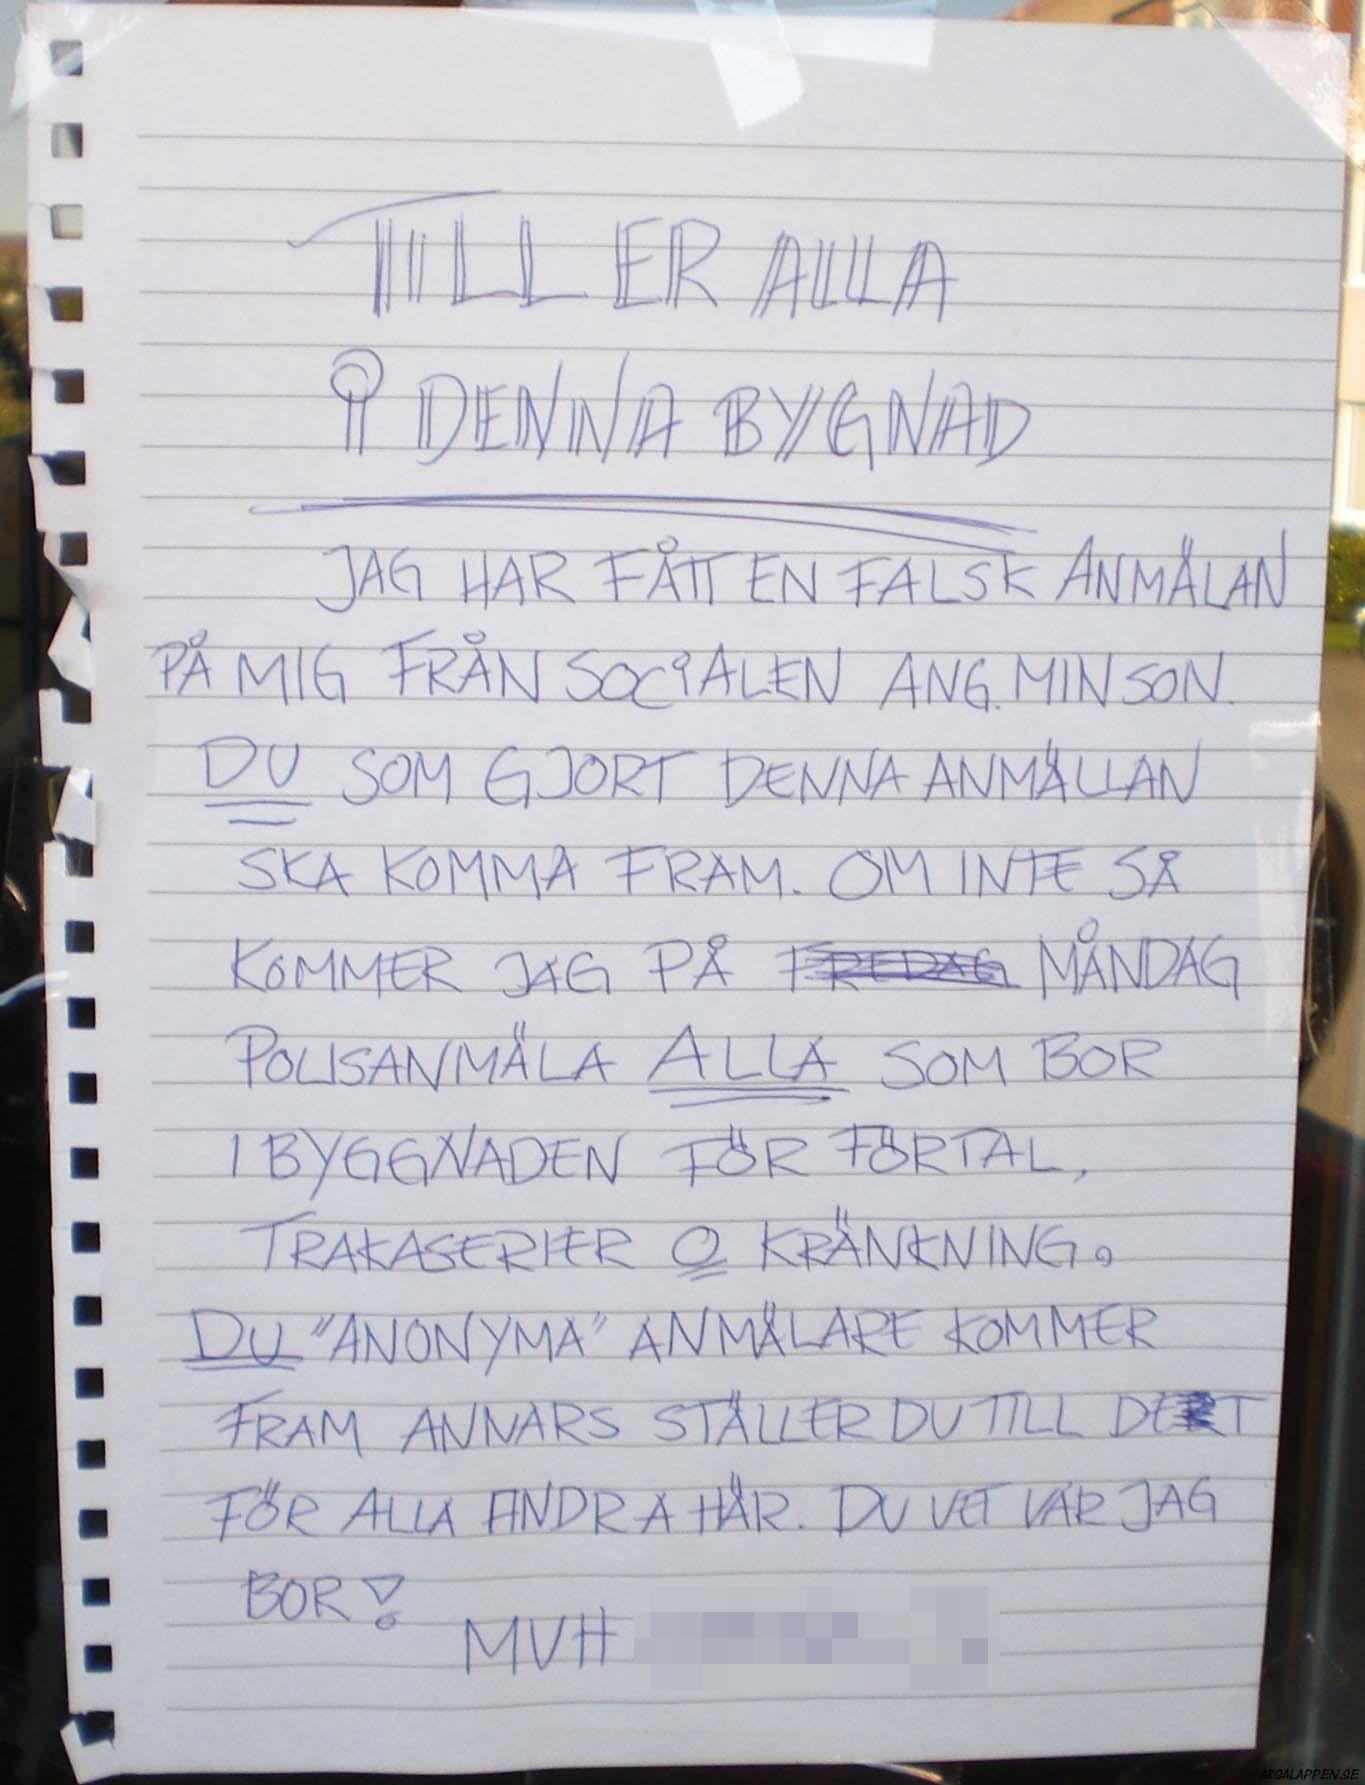 TILL ER ALLA
I DENNA BYGNAD
JAG HAR FÅTT EN FALSK ANMÄLAN
PÅ MIG FRÅN SOCIALEN ANG. MIN SON.
DU SOM GJORT DENNA ANMÄLLAN
SKA KOMMA FRAM. OM INTE SÅ
KOMMER JAG PÅ FREDAG MÅNDAG
POLISANMÄLA ALLA SOM BOR
I BYGGNADEN FÖR FÖRTAL,
TRAKASERIER O KRÄNKNING.
DU "ANONYMA" ANMÄLARE KOMMER
FRAM ANNARS STÄLLER DU TILL DET
FÖR ALLA ANDRA HÄR. DU VET VAR JAG
BOR!
MVH
ARGALAPPEN.SE